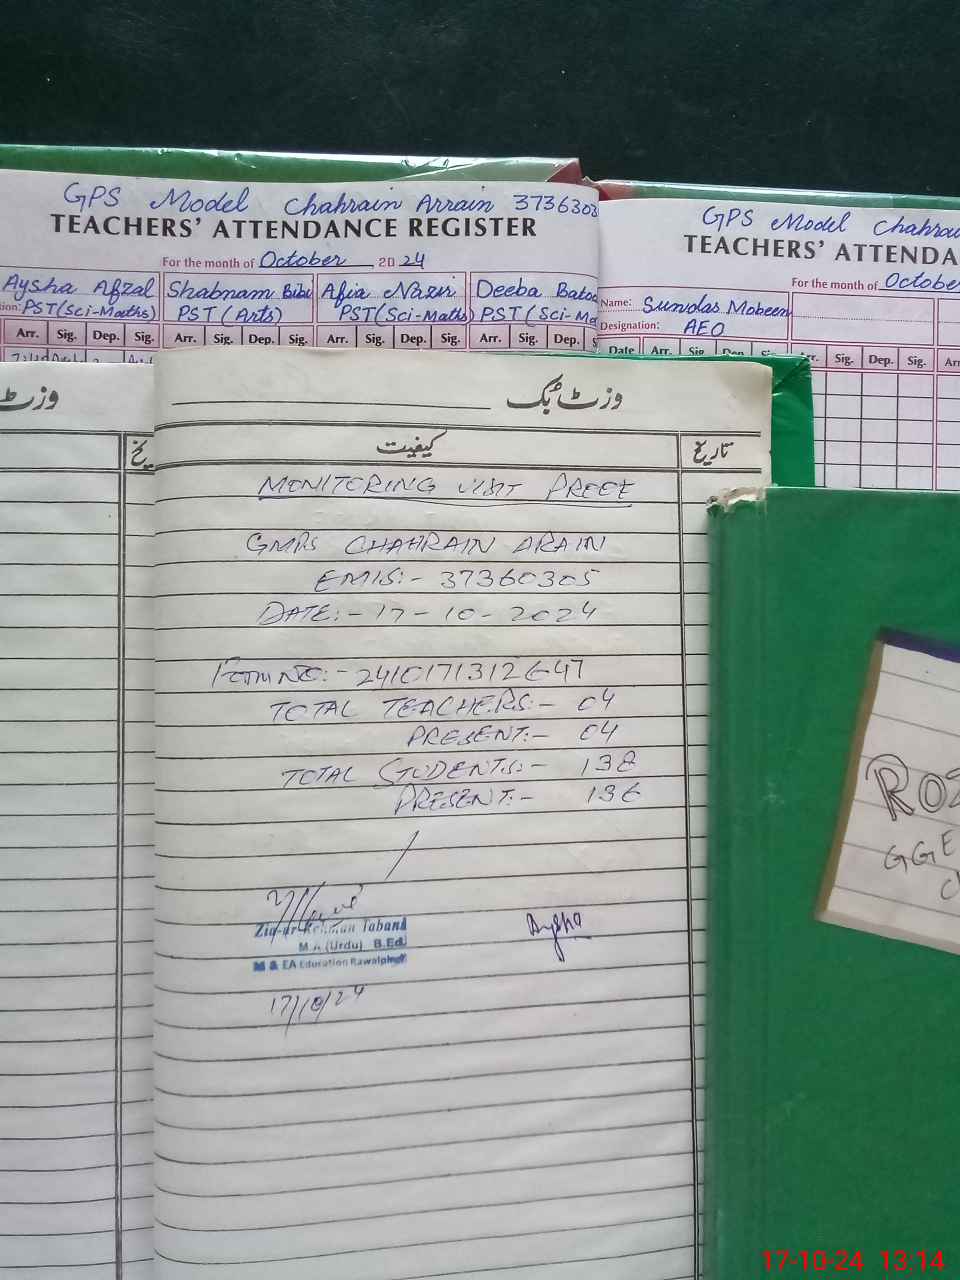 GPS Model Chahrain Arrain 3736303
TEACHERS' ATTENDANCE REGISTER
For the month of October 2024
Aysha Afzal Shabnam Bibi Afia Nazir Deeba Batoo
tion: PST(Sci-Maths) PST(Arts) PST(Sci-Maths) PST(Sci-Ma
Arr. Sig. Dep. Sig. Arr. Sig. Dep. Sig. Arr. Sig. Dep. Sig. Arr. Sig. Dep. S
GPS Model Chahrai
TEACHERS' ATTENDA
For the month of October
Name: Sundas Mobeen
Designation: AEO
Date Arr. Sig. Dep. Sig. Arr. Sig. Dep. Sig. Arr
وزٹ
یخ
وزٹ بک
کیفیت تاریخ
MONITORING VISIT PROOF
GMPS CHAHRAIN ARAIN
EMIS:- 37360305
DATE:- 17-10-2024
Form NO:- 2410171312647
TOTAL TEACHERS:- 04
PRESENT:- 04
TOTAL STUDENTS:- 138
PRESENT:- 136
Zia-ur-Rehman Taband
M.A (Urdu) B.Ed.
M & EA Education Rawalpindi
17/10/24
Aysha
ROZ
GGE
17-10-24 13:14